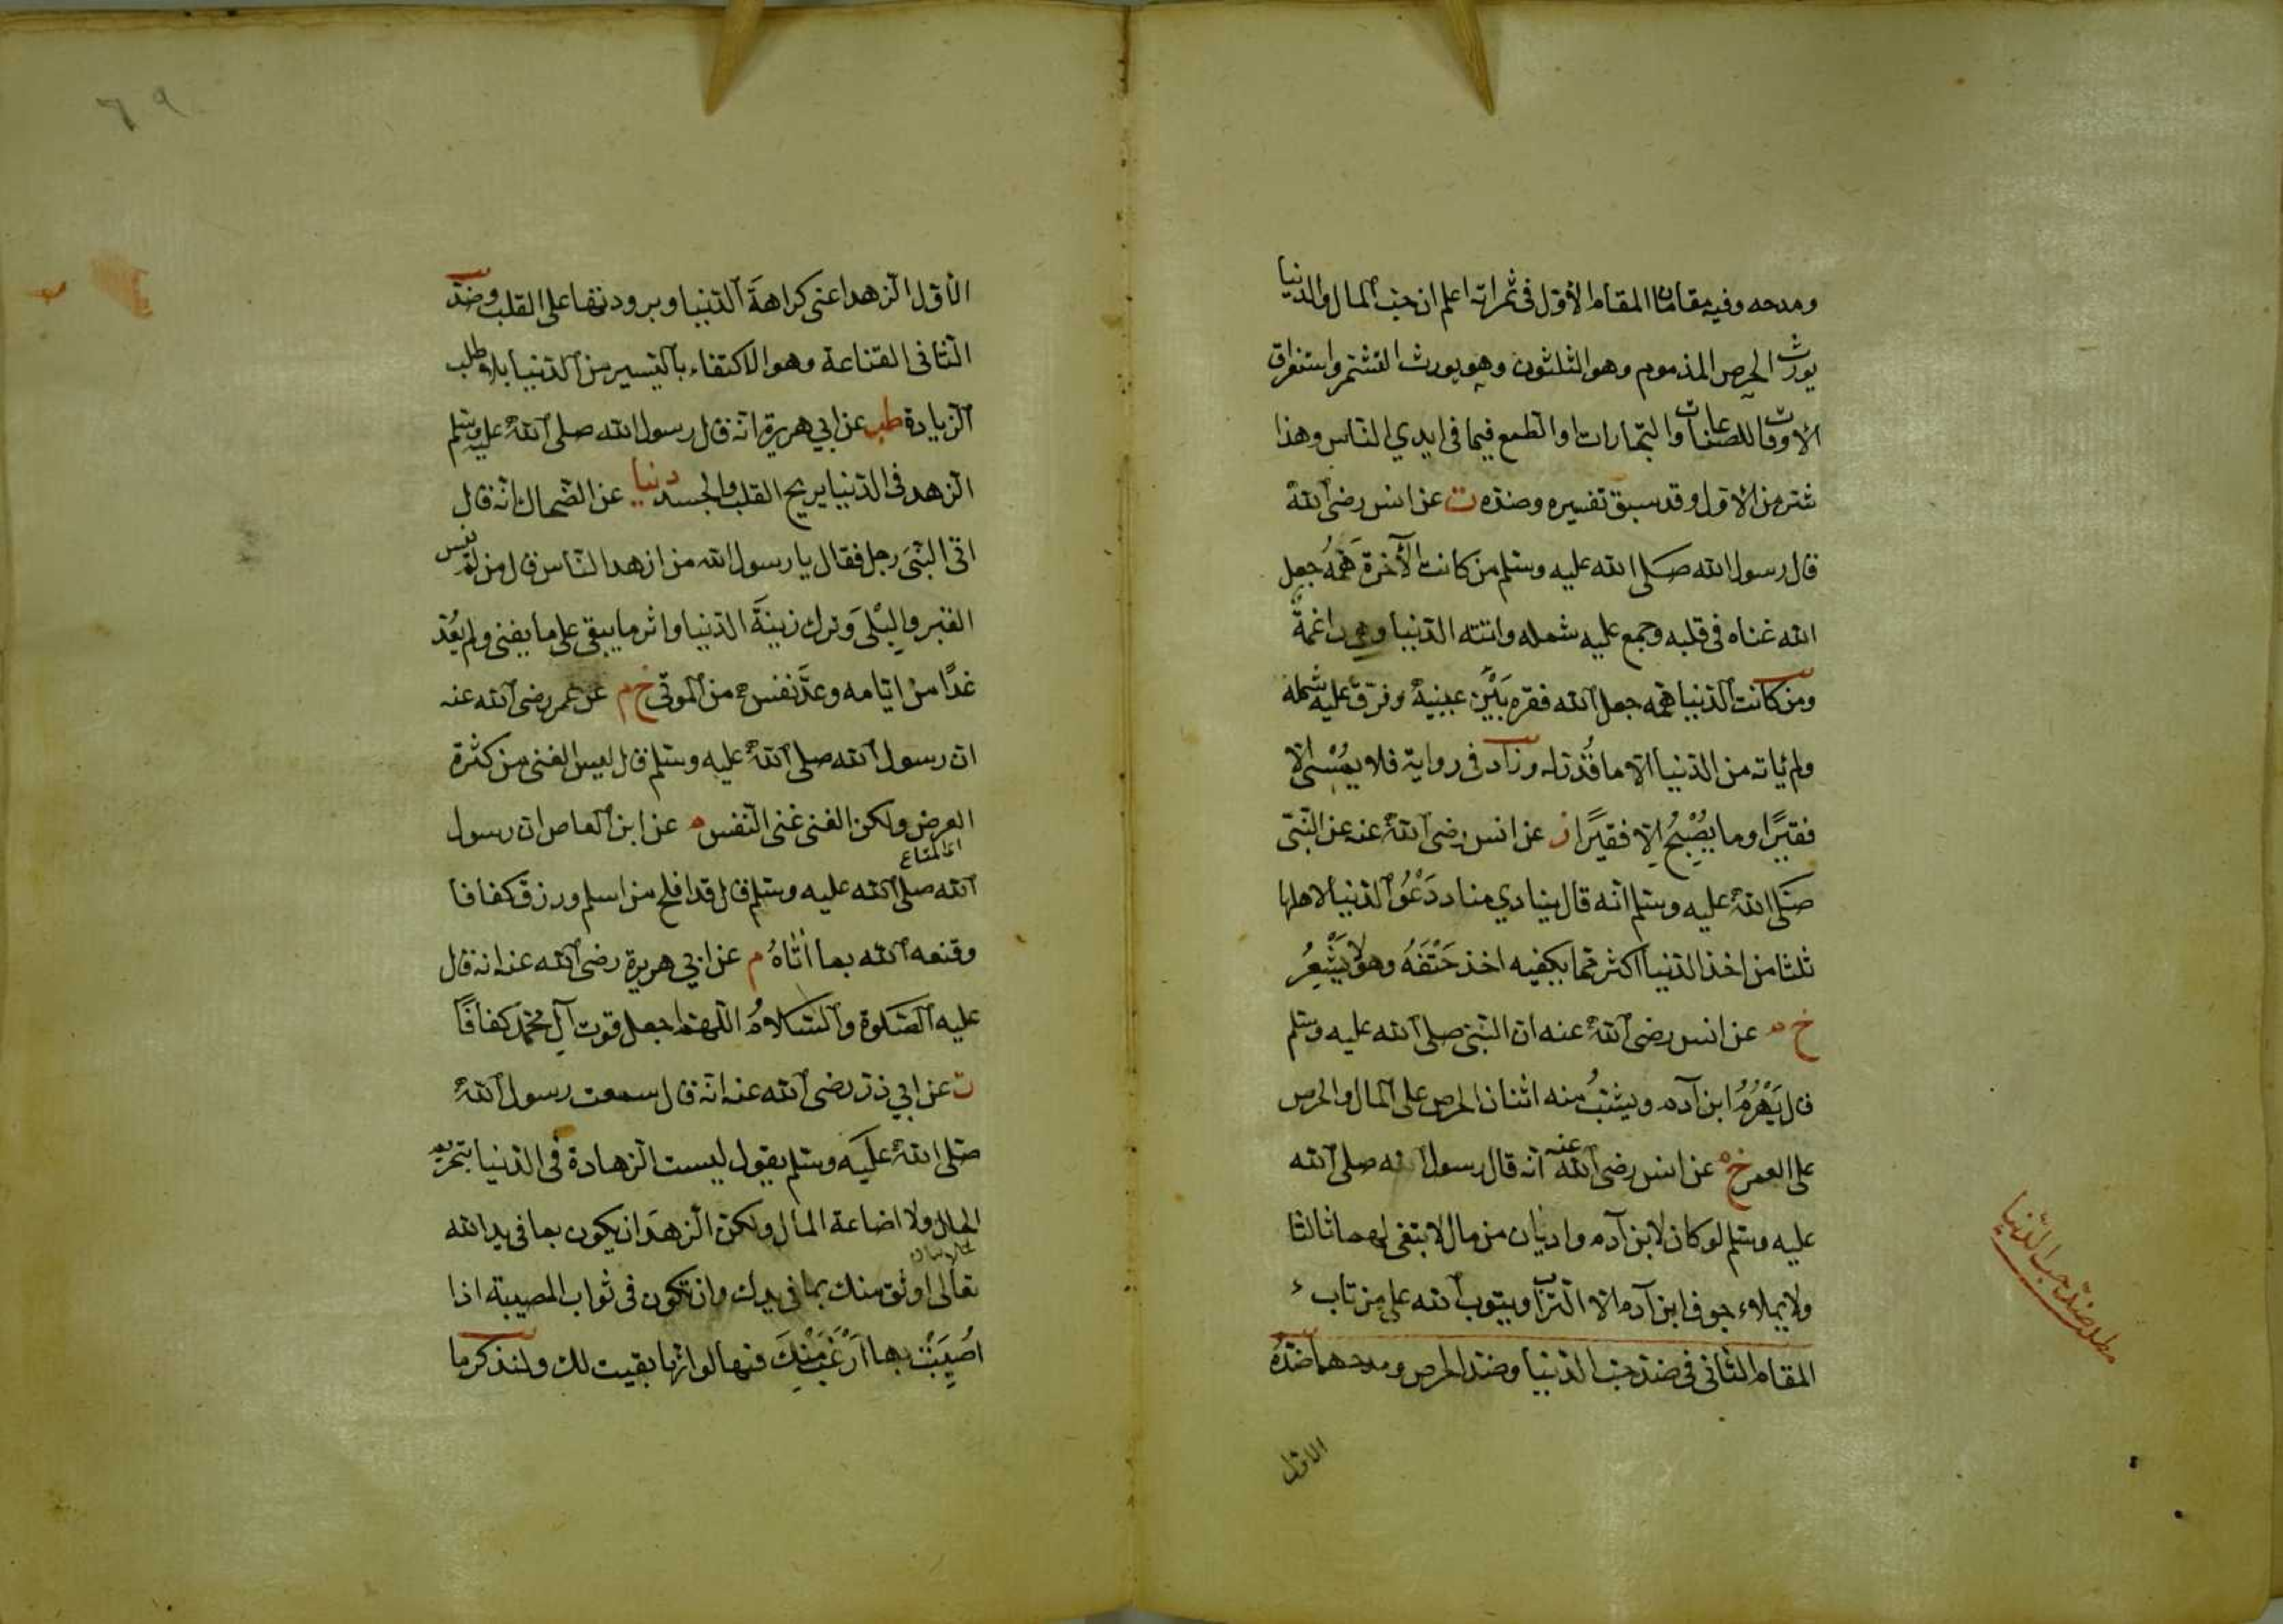 ومدحه وفيه مقامان المقام الاوّل فى ثمراته اعلم ان حبّ المال والدنيا
يورث الحرص المذموم وهو الثلثون وهو يورث التشمّر واستغراق
الاوقات للصناعات والتجارات او الطمع فيما فى ايدي الناس وهذا
شر من الاوّل وقد سبق تفسيره وضدّه ت عن انس رضى اللّٰه
قال رسول اللّٰه صلى اللّٰه عليه وسلم من كانت الآخرة همّهُ جعل
اللّٰه غناه فى قلبه وجمع عليه شمله واتته الدّنيا وهى راغمةٌ
ومن كانت الدّنيا همّه جعل اللّٰه فقره بَيْنَ عينيه وفرّق عليه شمله
ولم ياته من الدّنيا الاّ ما قُدّر له وزاد فى رواية فلا يُمْسِى الاّ
فقيرًا وما يُصْبِحُ اِلاّ فقيرًا ز عن انس رضى اللّٰه عنه عن النبىّ
صَلّى اللّٰه عليه وسلم انّه قال ينادي مناد دَعُوُا الدّنيا لاهلها
ثلثا من اخذ الدّنيا اكثر ممّا يكفيه اخذ حَتْفَهُ وهو لا يَشْعِرُ
خ م عن انس رضى اللّٰه عنه ان النّبىّ صلى اللّٰه عليه وسلم
قال يَهْرَمُ ابن آدم ويشبُّ منه اثنان الحرص على المال والحرص
على العمر خ م عن انس رضى اللّٰه عنه انّه قال رسول اللّٰه صلى اللّٰه
عليه وسلم لو كان لابن آدم واديان من مال لابتغى لهما ثالثا
ولا يملاء جوف ابن آدم الاّ التراب ويتوب اللّٰه على من تاب
المقام الثانى فى ضدّ حبّ الدّنيا وضدّ الحرص ومدحهما ضدّهُ
الاوّل
مطلب ضدّ حب الدّنيا
٦٩
الاوّل الزهد اعنى كراهةَ الدّنيا وبرودتها على القلب وضدّ
الثانى القناعة وهو الاكتفاء باليسير من الدّنيا بلا طلب
الزيادة طب عن ابي هريرة انّه قال رسول اللّٰه صلى اللّٰه عليه وسلم
الزهد فى الدّنيا يريح القلب والجسد دنيا عن الضحاك انّه قال
اتى النّبىَ رجل فقال يا رسول اللّٰه من ازهد النّاس قال من لم ينس
القبر والبِلْى وَترك زينةَ الدّنيا واثر ما يبقى على ما يفنى ولم يعُدّ
غدًا من ايّامه وعدّ نفسه من الموتى خ م عن عمر رضى اللّٰه عنه
ان رسول اللّٰه صلى اللّٰه عليه وسلم قال ليس الغنى من كثرة
العرض ولكن الغنى غنى النّفس م عن ابن العاص ان رسول
اى المتاع
اللّٰه صلى اللّٰه عليه وسلم قال قد افلح من اسلم ورزق كفافا
وقنعه اللّٰه بما اٰتاهُ م عن ابي هريرة رضى اللّٰه عنه انه قال
عليه الصّلوة والسّلامُ اللّهمّ اجعل قوت آلِ محمّد كفافًا
ت عن ابي ذرّ رضى اللّٰه عنه انّه قال سمعت رسول اللّٰه
صلى اللّٰه عليه وسلم يقول ليست الزهادة فى الدّنيا بتحريم
الحلال ولا اضاعة المال ولكن الزهدَ ان يكون بما فى يد اللّٰه
تعالى اوثق منك بما فى يدك وان تكون فى ثواب المصيبة اذا
اُصِيبَتْ بها ارْغَبَ مِنْكَ فيها لو انّها بقيت لك ولنذكر ما